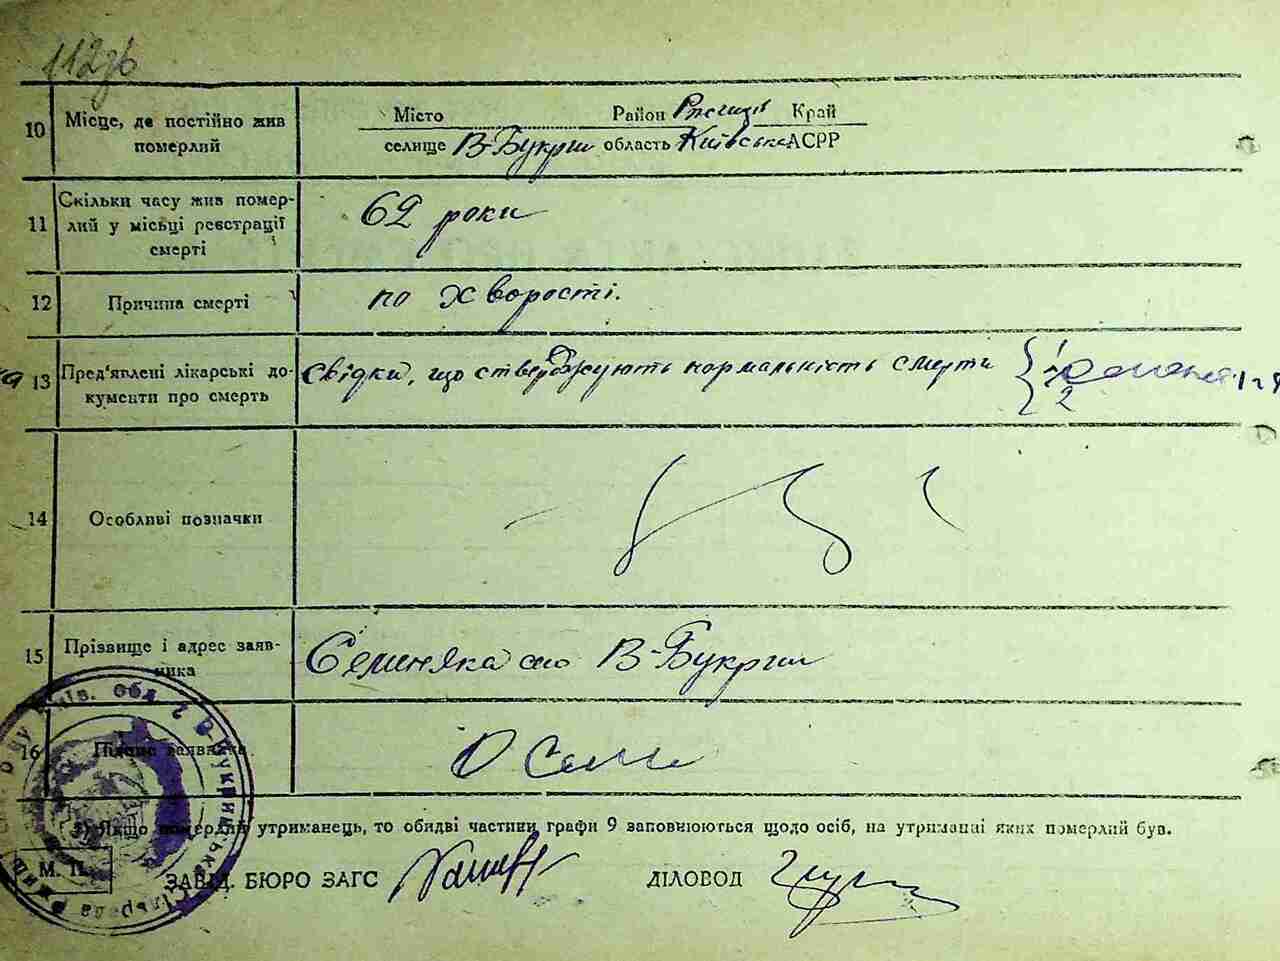 112зв
10 Місце, де постійно жив померлий
Місто Район Ржищів Край
селище В-Букрин область Київська АСРР
11 Скільки часу жив помер-
лий у місьці реєстрації
смерті
62 роки
12 Причина смерті по хворості.
13 Пред'явлені лікарські до-
кументи про смерть
свідки, що стверджують нормальність смерти { 1
2
14 Особливі позначки
15 Прізвище і адрес заяв-
ника
Семиняка село В-Букрин
16 Підпис заявника О Семи
Якщо померлий утриманець, то обидві частини графи 9 заповнюються щодо осіб, на утриманні яких померлий був.
М. П. ЗАВІД. БЮРО ЗАГС ДІЛОВОД
Київ. обл. В Букринська Сільрада